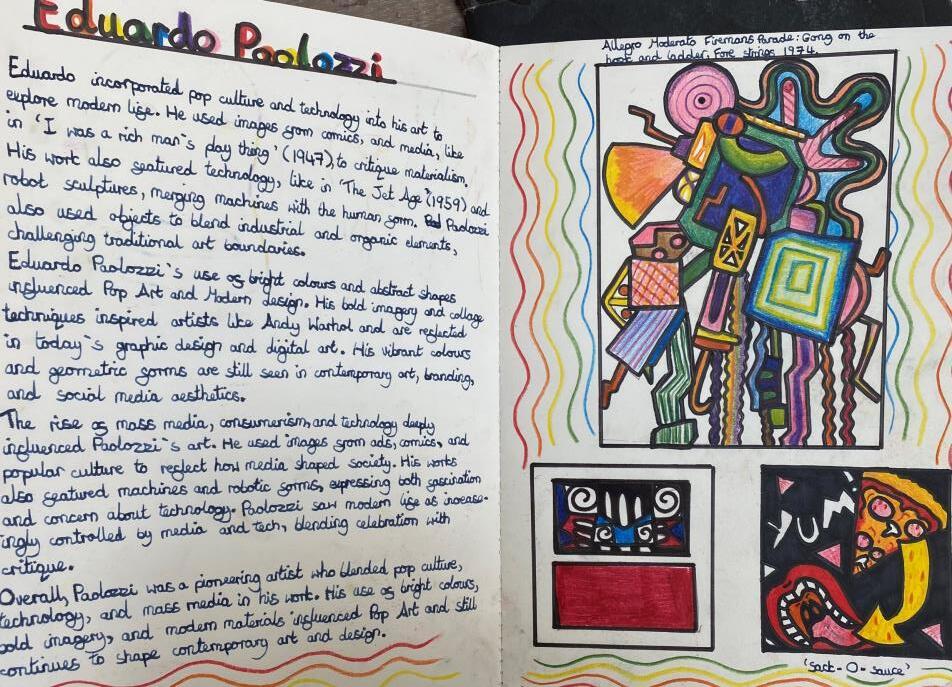 Eduardo Paolozzi
Eduardo incorporated pop culture and technology into his art to
explore modern life. He used images from comics, and media, like
in 'I was a rich man's play thing' (1947), to critique materialism.
His work also featured technology, like in 'The Jet Age' (1959) and
robot sculptures, merging machines with the human form. Paolozzi
also used objects to blend industrial and organic elements,
challenging traditional art boundaries.
Eduardo Paolozzi's use of bright colours and abstract shapes
influenced Pop Art and Modern design. His bold imagery and collage
techniques inspired artists like Andy Warhol and are reflected
in today's graphic design and digital art. His vibrant colours
and geometric forms are still seen in contemporary art, branding,
and social media aesthetics.
The rise of mass media, consumerism, and technology deeply
influenced Paolozzi's art. He used images from ads, comics, and
popular culture to reflect how media shaped society. His works
also featured machines and robotic forms, expressing both fascination
and concern about technology. Paolozzi saw modern life as increas-
ingly controlled by media and tech, blending celebration with
critique.
Overall, Paolozzi was a pioneering artist who blended pop culture,
technology, and mass media in his work. His use of bright colours,
bold imagery, and modern materials influenced Pop Art and still
continues to shape contemporary art and design.
Allegro Moderato Firemans Parade: Gong on the
hook and ladder. Fore strings 1974.
YUM
'Sack-O-sauce'